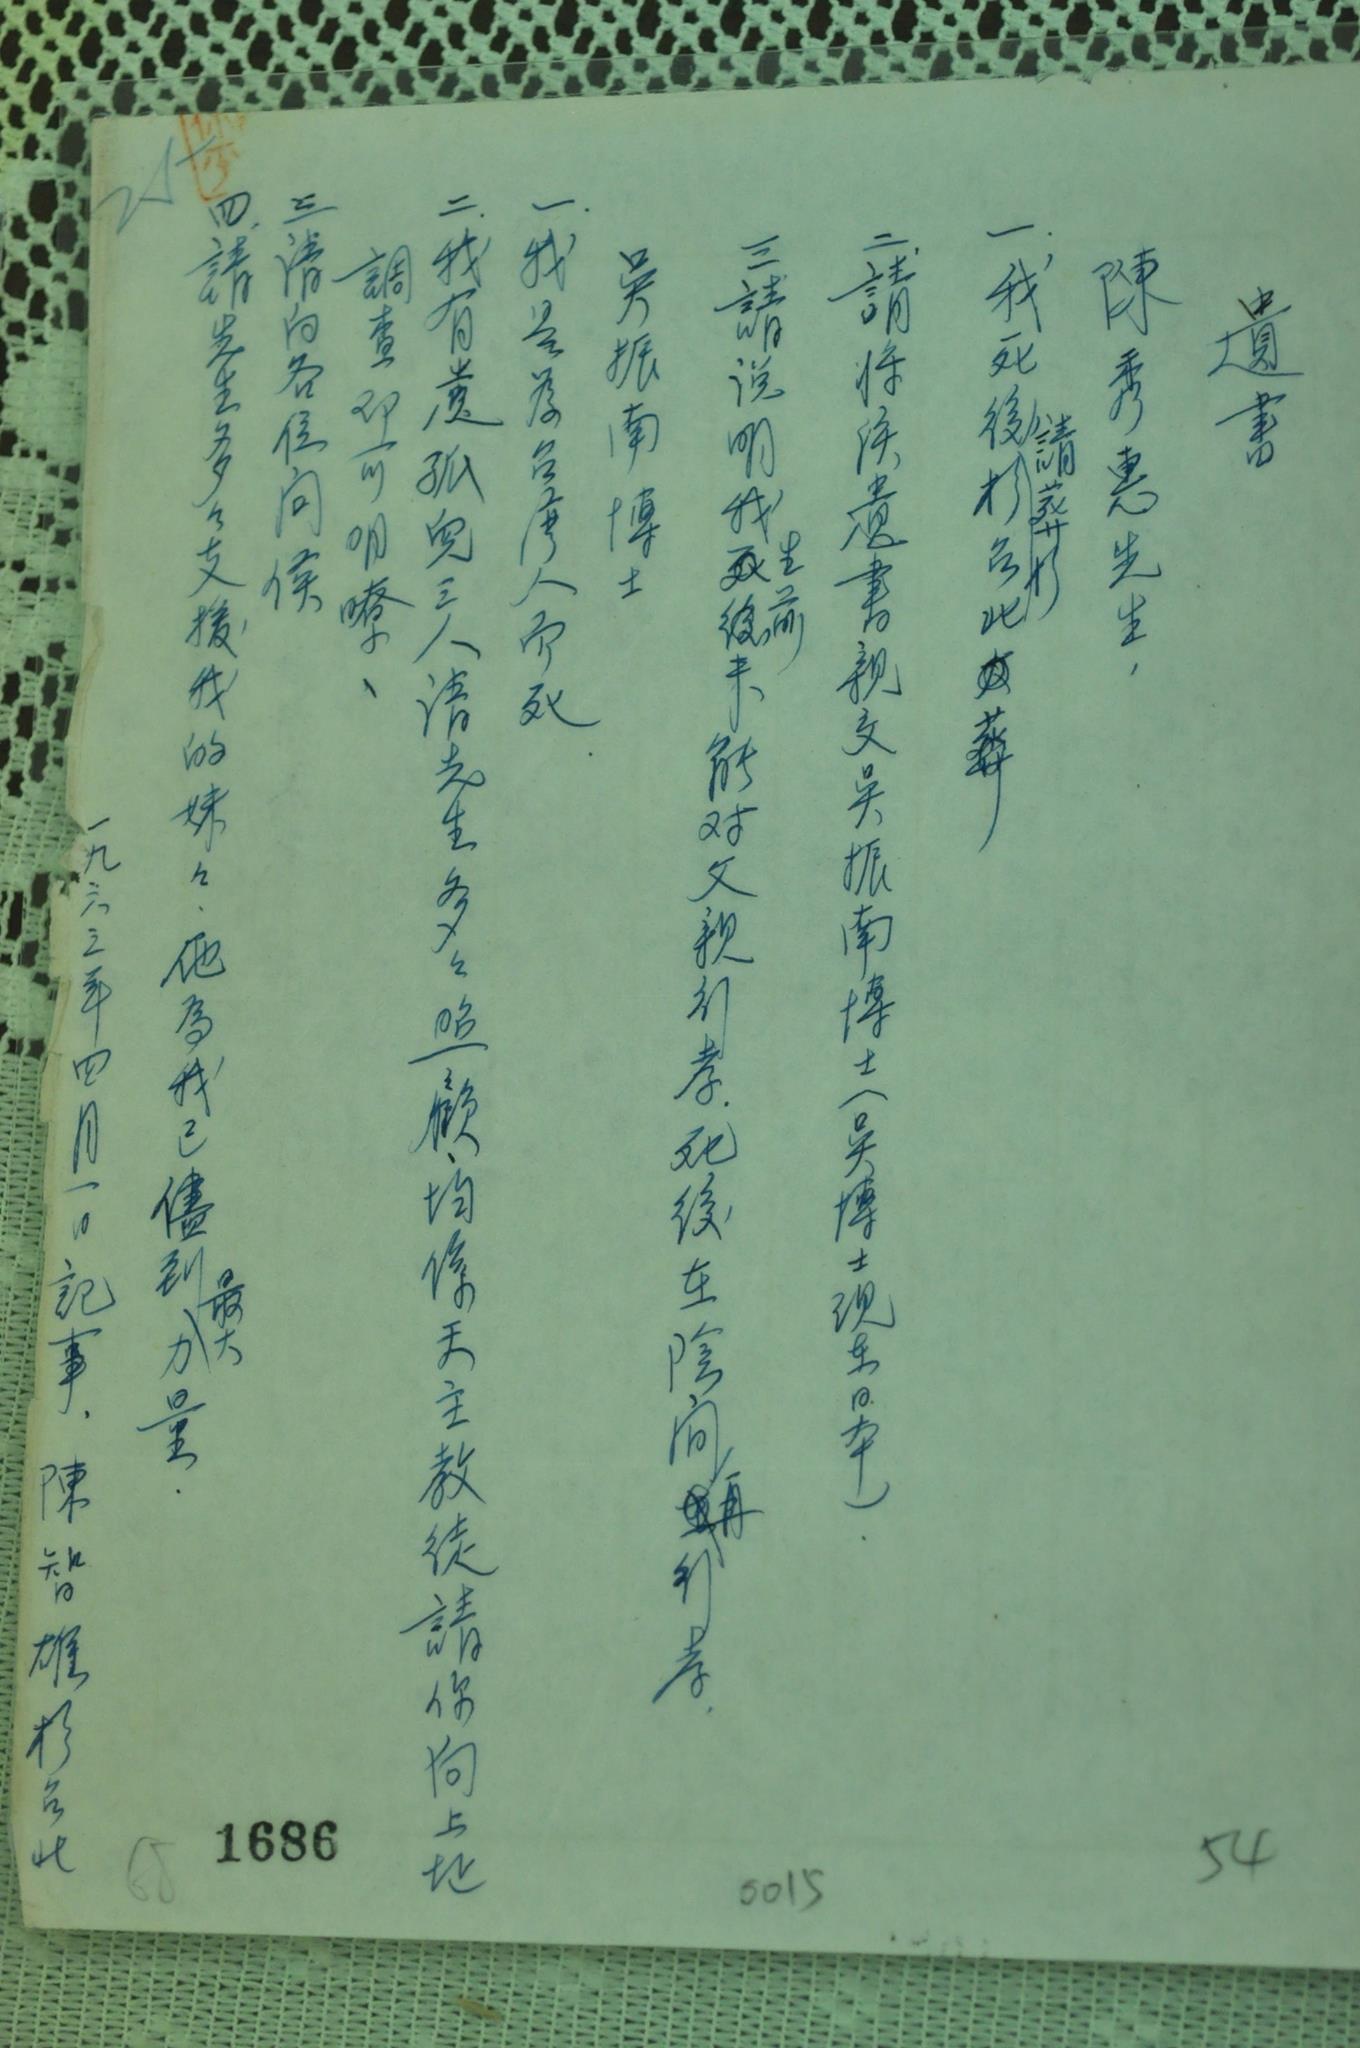 遺書
陳秀惠先生，
一.我死後請葬於台北
二.請將該遺書親交吳振南博士(吳博士現在日本).
三請说明我生前未能对父親行孝.死後在陰间再行孝.
吳振南博士
一.我是為台湾人而死.
二.我有遺孤兒三人請先生多々照顧、均係天主教徒請你向上址
調查即可明瞭、
三請向各位问候
四.請先生多々支援我的妹々.他為我已儘到最大力量.
一九六三年四月一日記事.陳智雄於台北
1686
0015
54